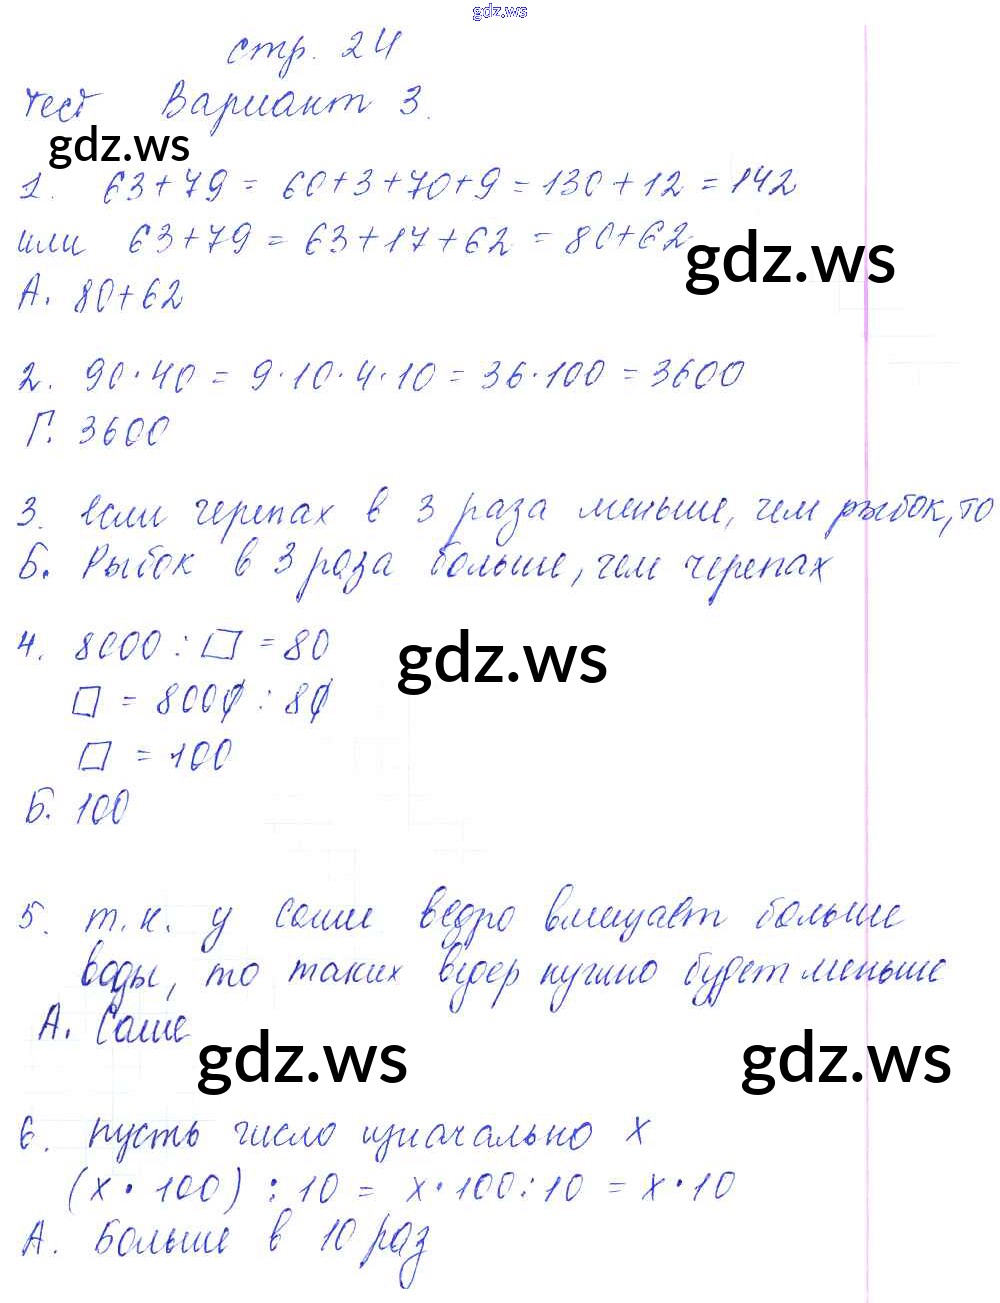 gdz.ws
стр. 24
тест Вариант 3.
gdz.ws
1. 63+79 = 60+3+70+9 = 130+12 = 142
или 63+79 = 63+17+62 = 80+62
gdz.ws
А. 80+62
2. 90·40 = 9·10·4·10 = 36·100 = 3600
Г. 3600
3. если черепах в 3 раза меньше, чем рыбок, то
Б. Рыбок в 3 раза больше, чем черепах
4. 8000 : □ = 80
gdz.ws
□ = 8000 : 80
□ = 100
Б. 100
5. т.к. у Саши ведро вмещает больше
воды, то таких ведер нужно будет меньше
А. Саше
gdz.ws gdz.ws
6. пусть число изначально х
(х · 100) : 10 = х·100:10 = х·10
А. Больше в 10 раз